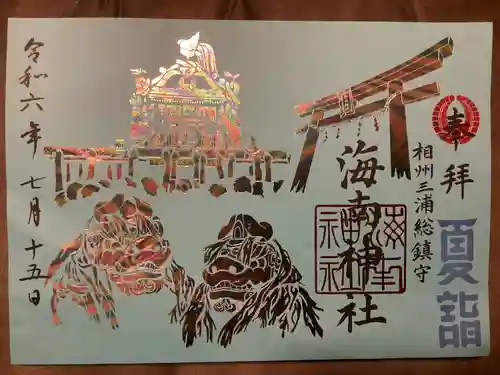 奉拝
夏詣
相州三浦総鎮守
海南神社
令和六年七月十五日